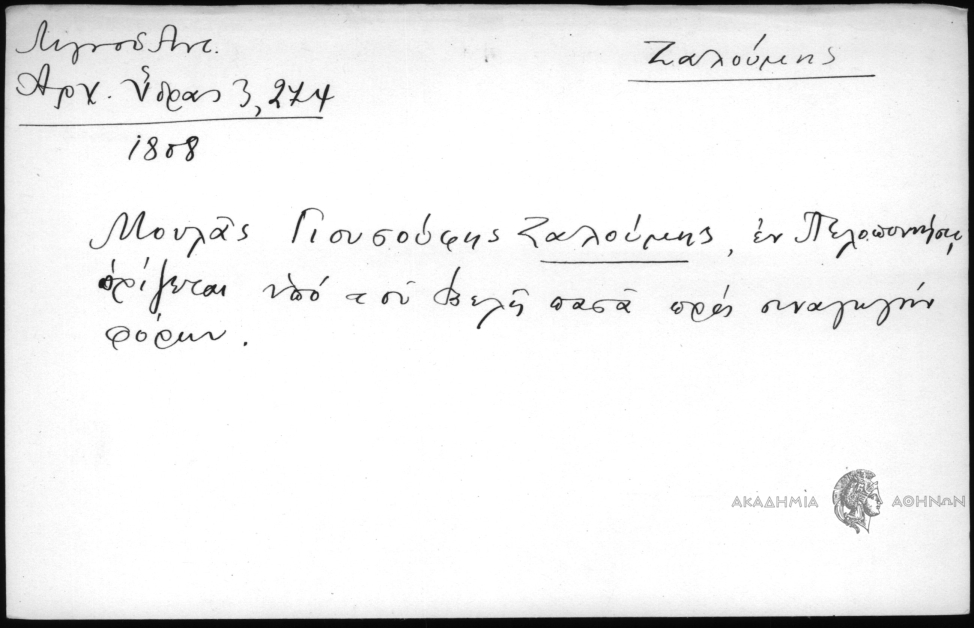 Λιγνοῦ Ἀντ.
Ζαλούμης
Ἀρχ. Ὕδρας 3, 274
1808
Μουλᾶς Γιουσούφης Ζαλούμης, ἐν Πελοποννήσῳ,
ὁρίζεται ὑπό τοῦ Βελῆ πασᾶ πρός συναγωγήν
φόρων.
ΑΚΑΔΗΜΙΑ ΑΘΗΝΩΝ